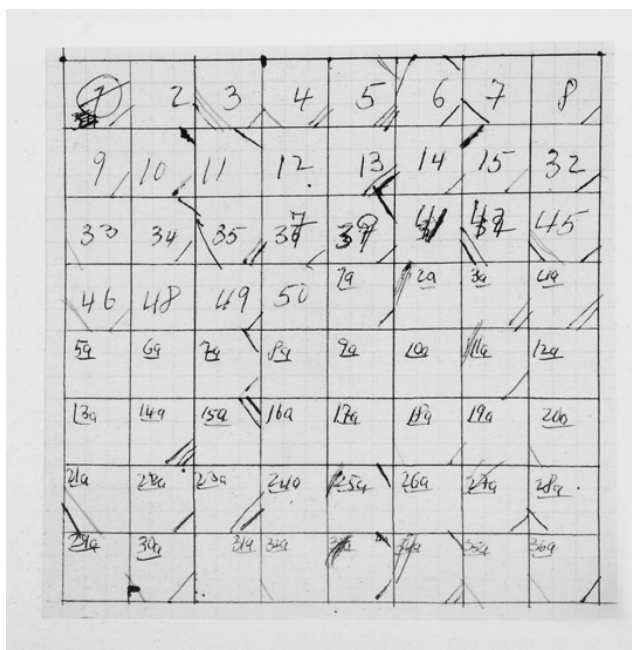 1 2 3 4 5 6 7 8
9 10 11 12 13 14 15 32
33 34 35 45
46 48 49 50 1a 2a 3a 4a
5a 6a 7a 8a 9a 10a 11a 12a
13a 14a 15a 16a 17a 18a 19a 20a
21a 22a 23a 24a 25a 26a 27a 28a
29a 30a 31a 32a 34a 35a 36a